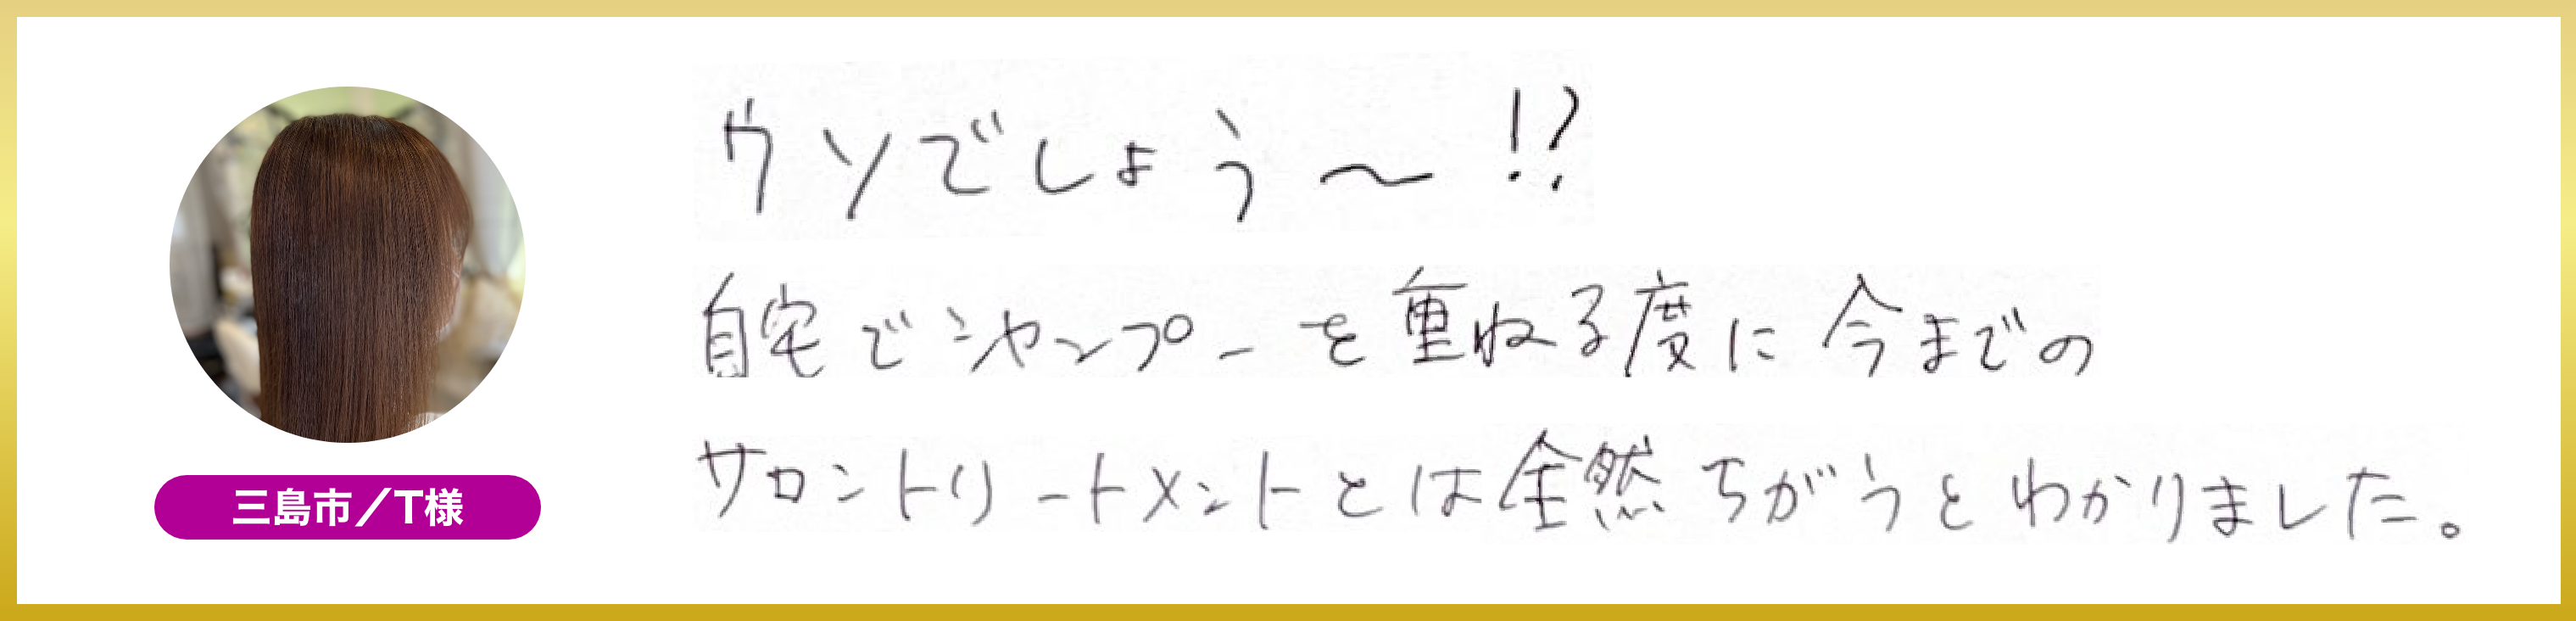 ウソでしょう〜!?
自宅でシャンプーを重ねる度に今までの
サロントリートメントとは全然ちがうとわかりました。
三島市／T様